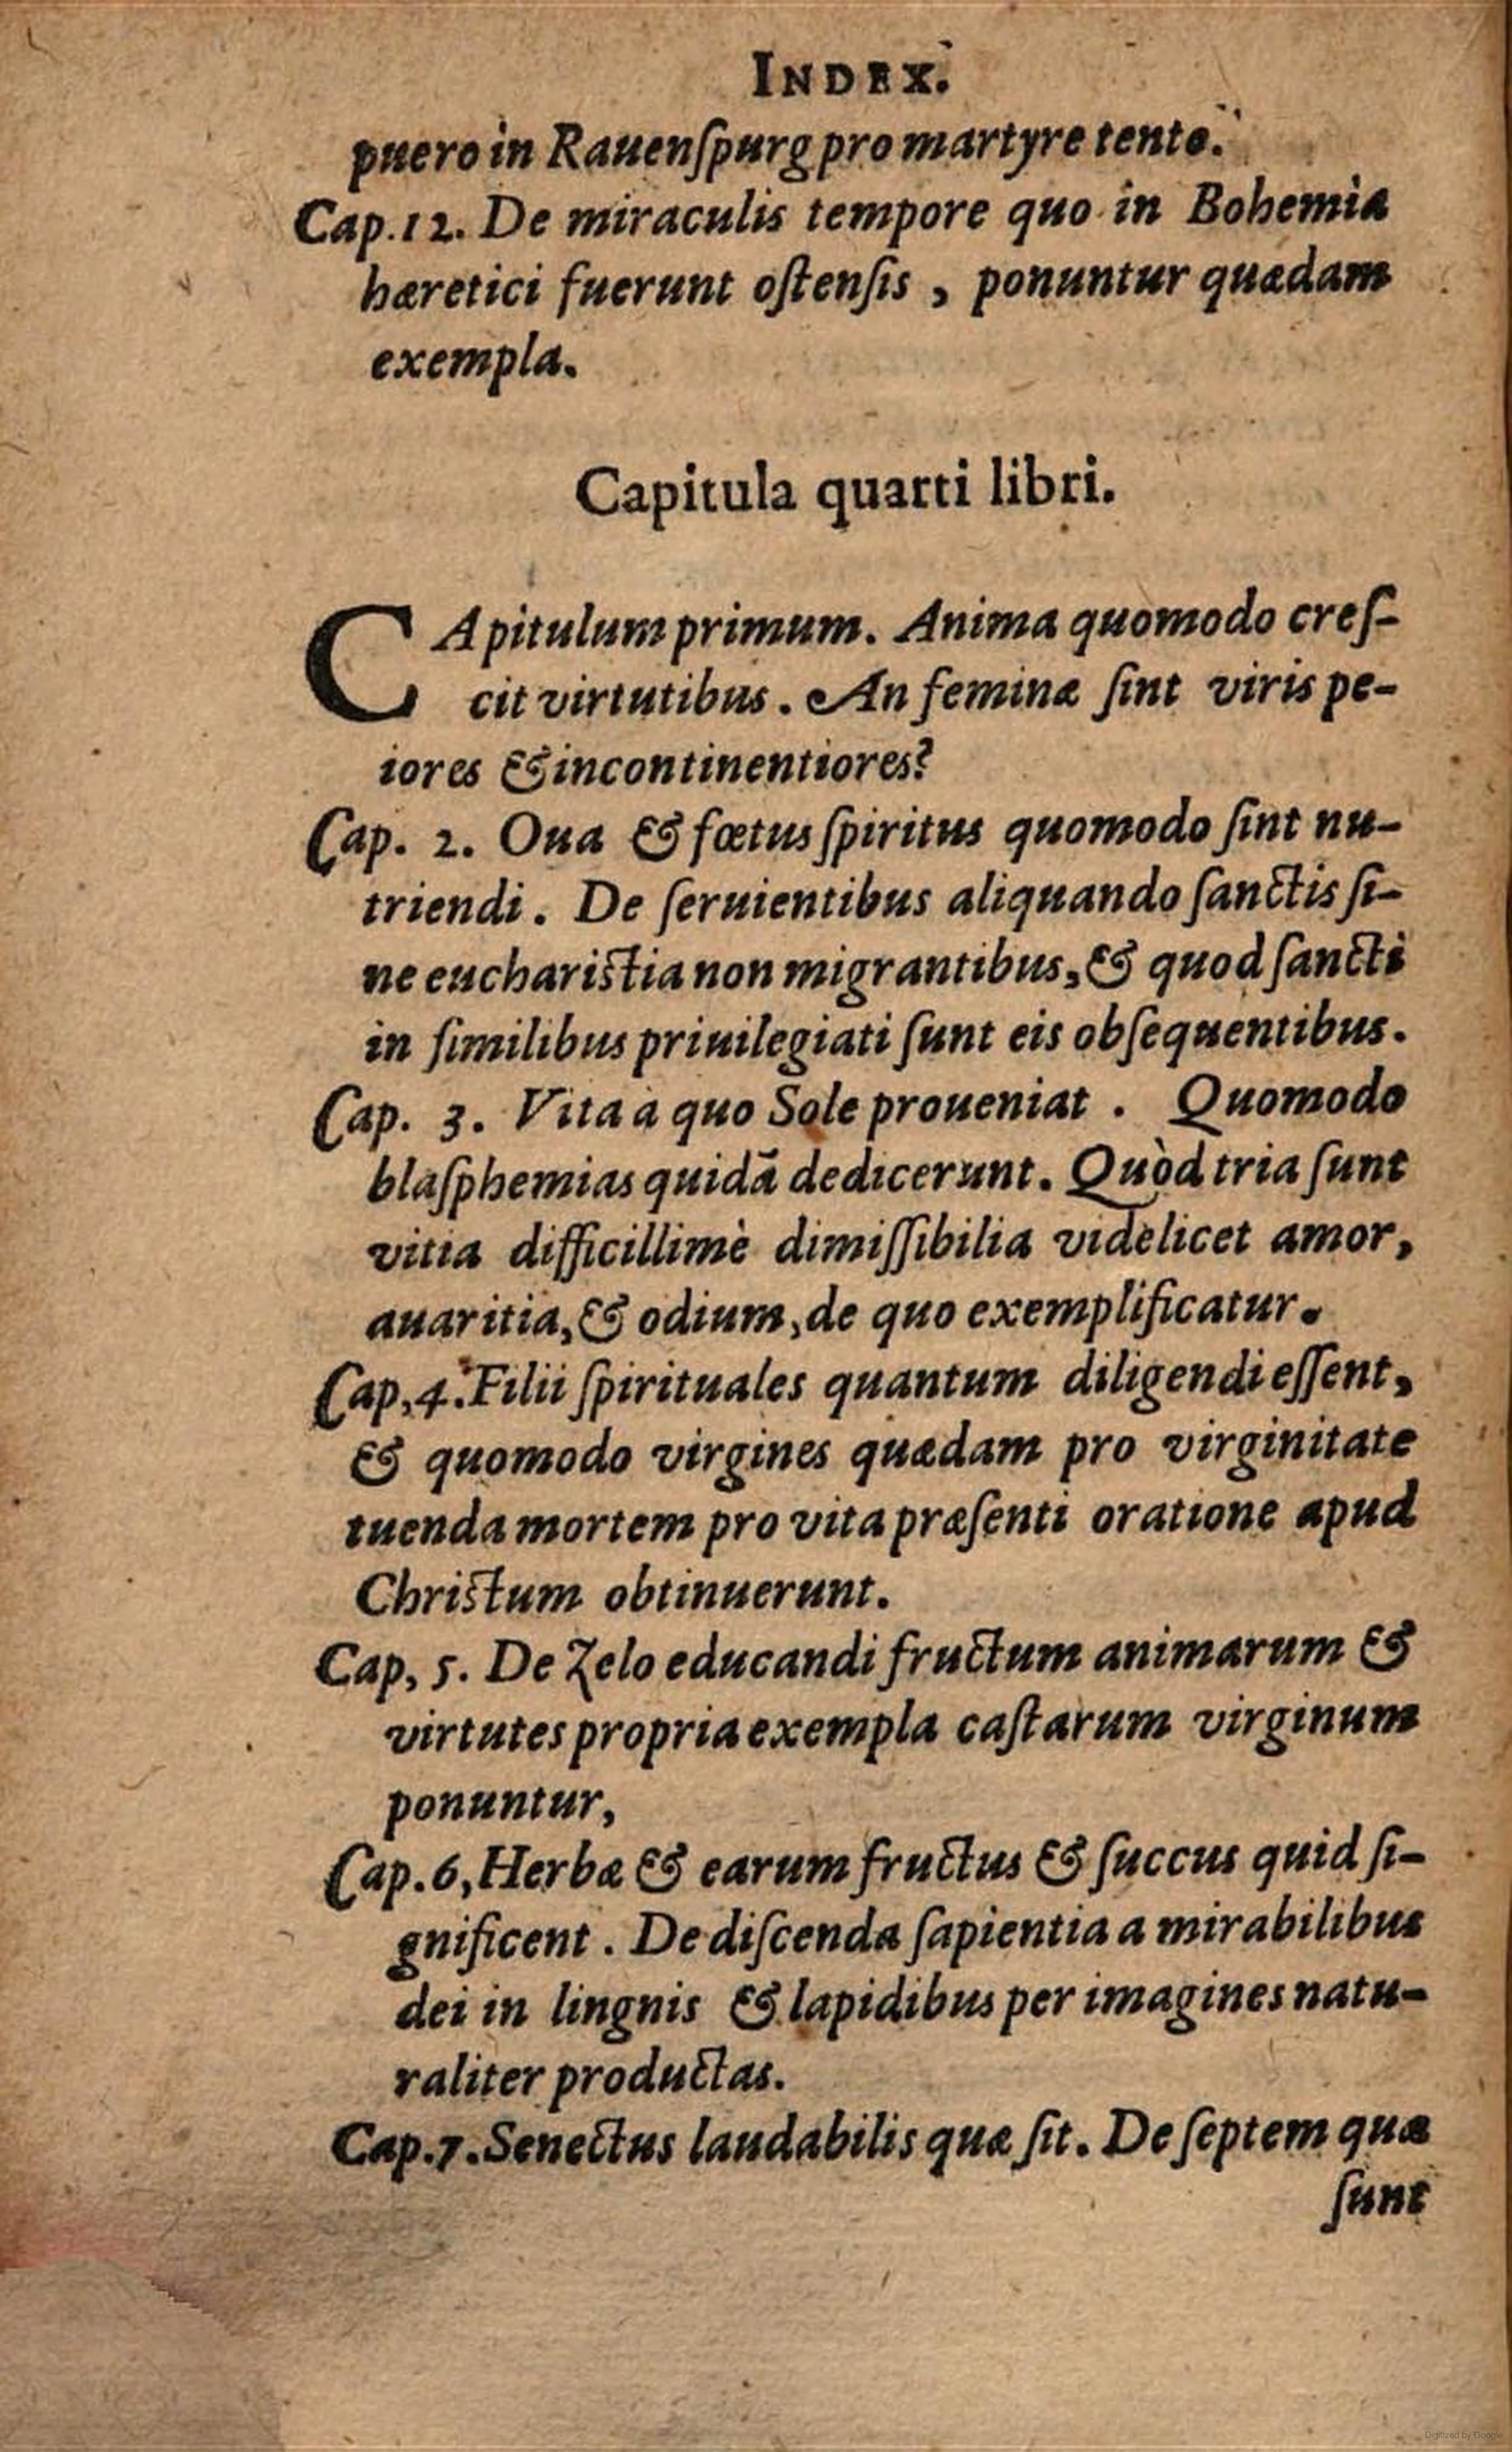 INDEX.
puero in Rauenſpurg pro martyre tento.
Cap.12. De miraculis tempore quo in Bohemia
hæretici fuerunt oſtenſis, ponuntur quædam
exempla.
Capitula quarti libri.
CApitulum primum. Anima quomodo creſ-
cit virtutibus. An feminæ ſint viris pe-
iores & incontinentiores?
Cap. 2. Oua & fœtus ſpiritus quomodo ſint nu-
triendi. De ſeruientibus aliquando ſanctis ſi-
ne euchariſtia non migrantibus, & quod ſancti
in ſimilibus priuilegiati ſunt eis obſequentibus.
Cap. 3. Vita à quo Sole proueniat. Quomodo
blaſphemias quidã dedicerunt. Quòd tria ſunt
vitia difficillimè dimiſſibilia videlicet amor,
auaritia, & odium, de quo exemplificatur.
Cap,4.Filii ſpirituales quantum diligendi eſſent,
& quomodo virgines quædam pro virginitate
tuenda mortem pro vita præſenti oratione apud
Chriſtum obtinuerunt.
Cap, 5. De Zelo educandi fructum animarum &
virtutes propria exempla caſtarum virginum
ponuntur,
Cap.6, Herbæ & earum fructus & ſuccus quid ſi-
gnificent. De diſcenda ſapientia a mirabilibus
dei in lingnis & lapidibus per imagines natu-
raliter productas.
Cap.7.Senectus laudabilis quæ ſit. De ſeptem quæ
ſunt
Digitized by Google